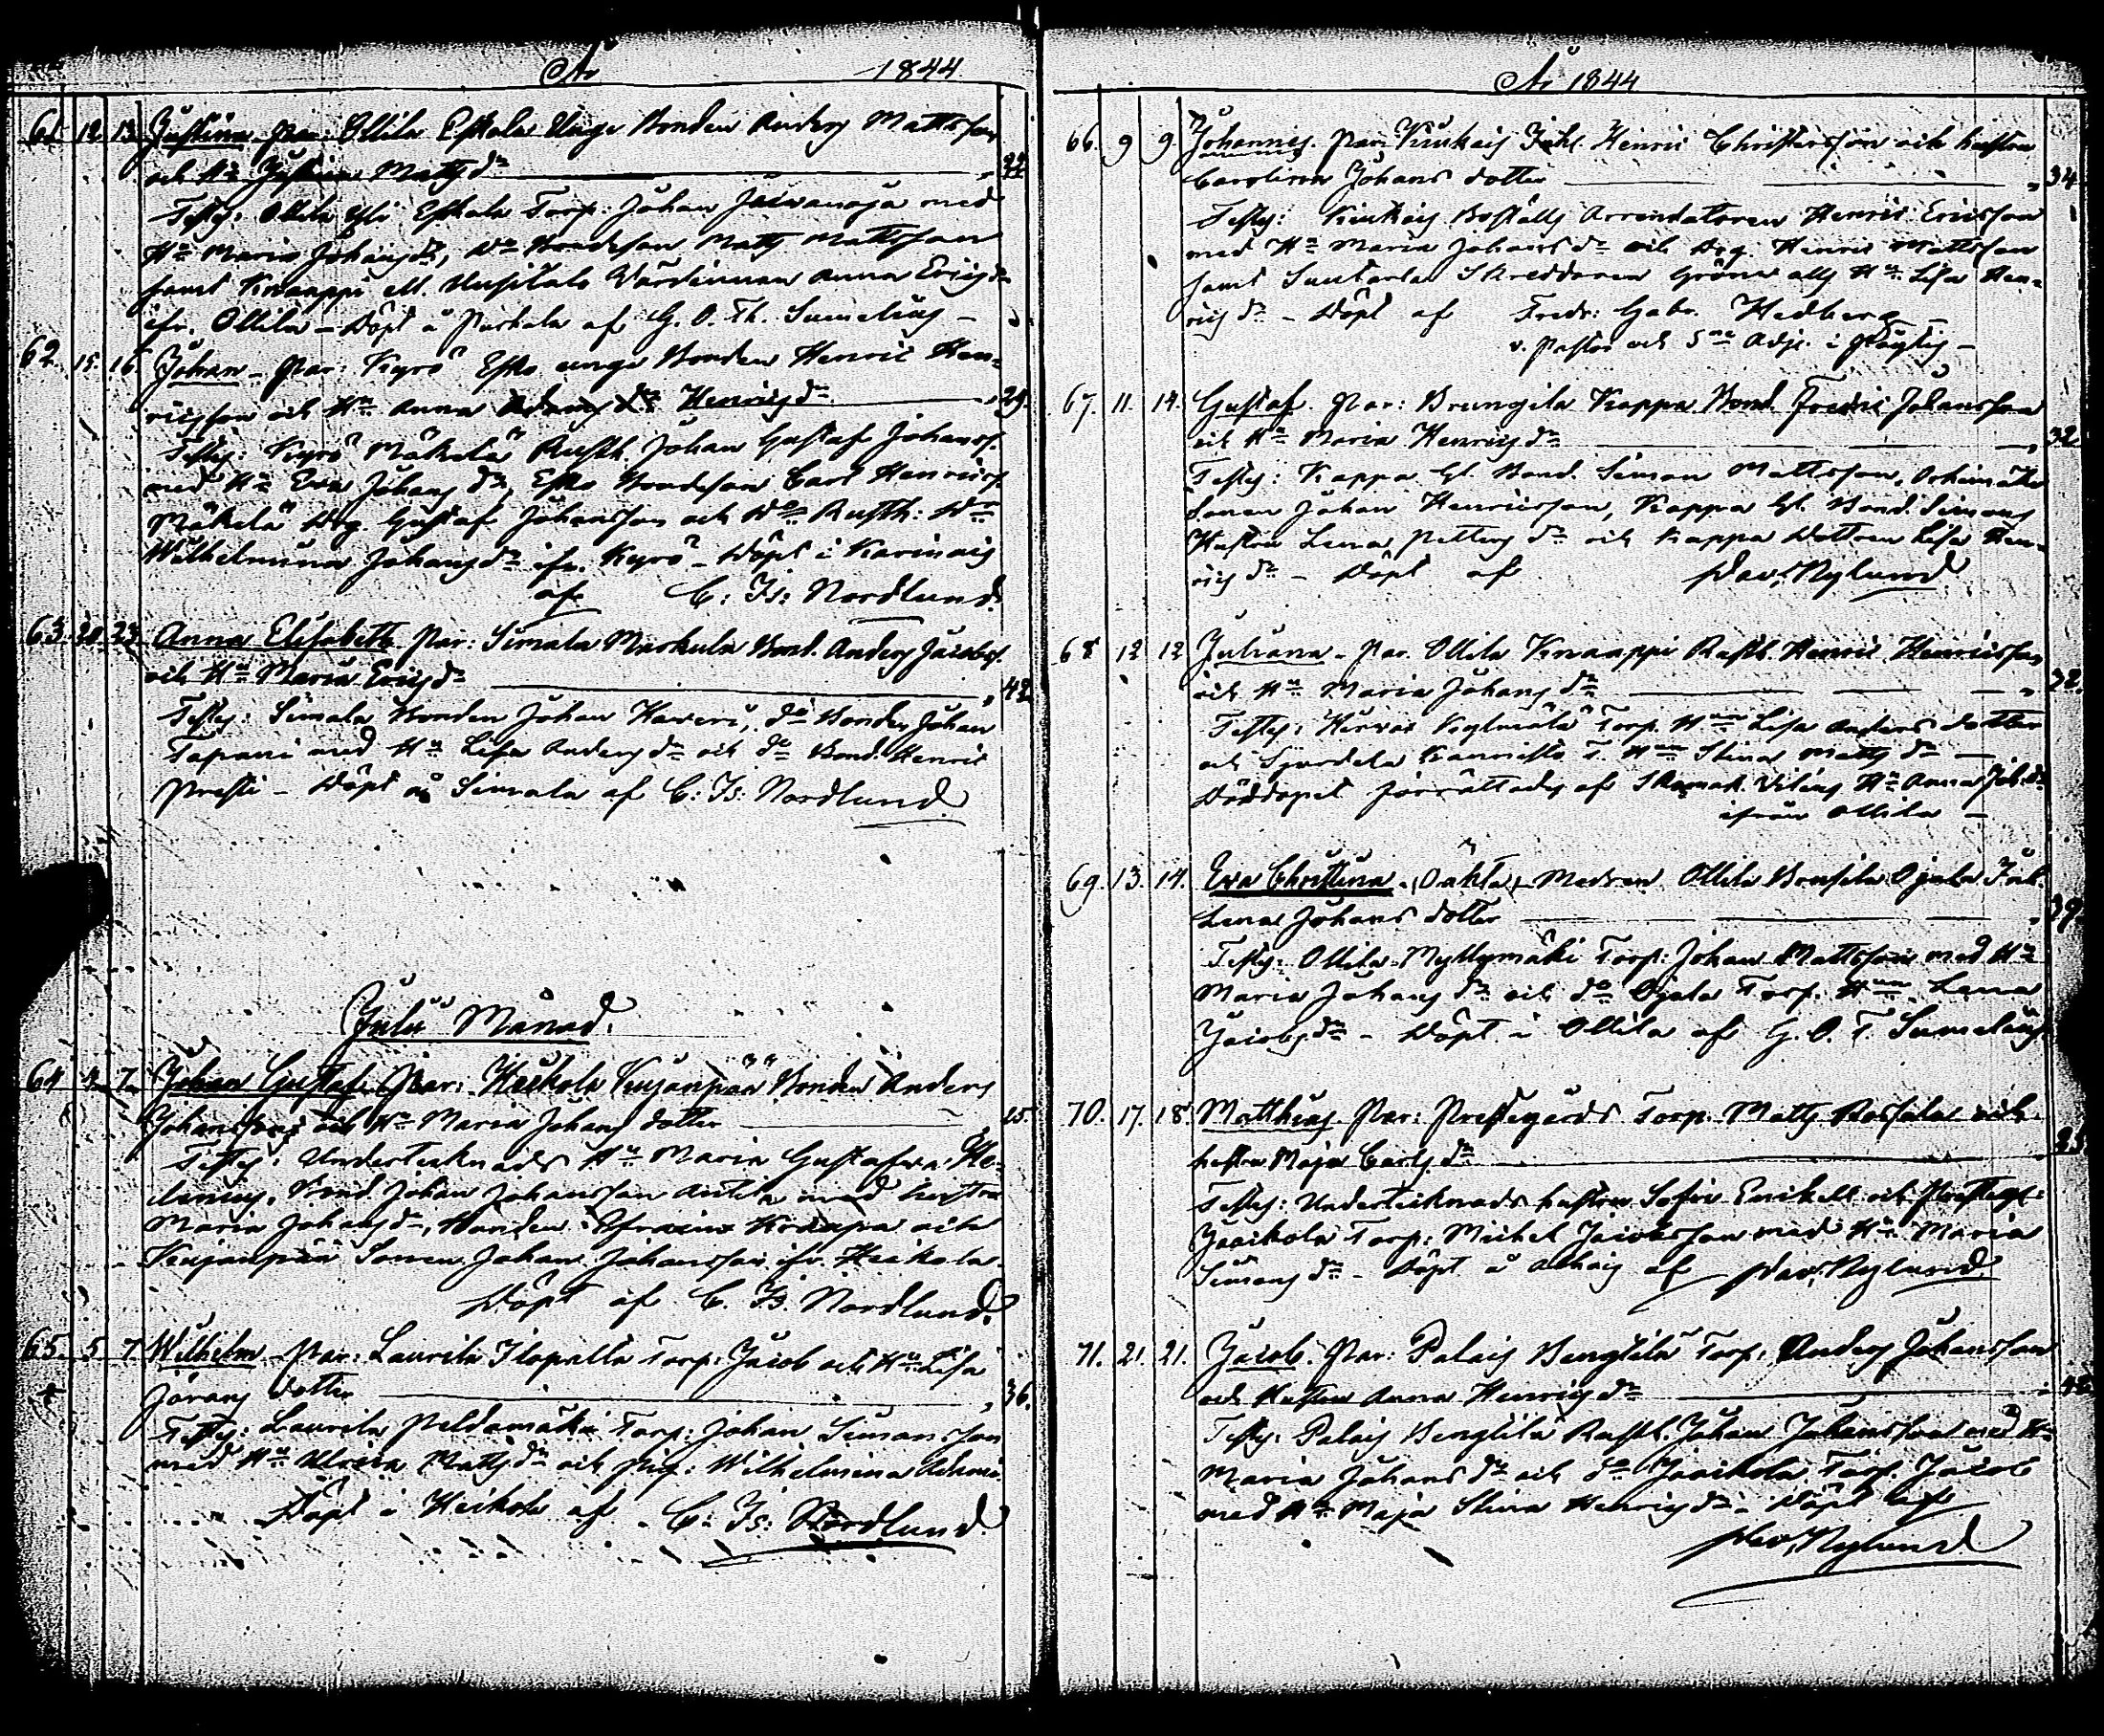 År 1844
61. 12. 13. Justina. Par: Ollila Eskola Unge Bonden Anders Mattsson
och Hu Justina Matts dr 22
Testes: Ollila Yli Eskola Torp: Johan med
Hu Maria Johans dr, do Bondeson Matts Mattsson
samt Knaappi ell. Uusitalo Värdinnan Anna Erics dr
ifr. Ollila - Döpt i af G. O. Th. Sumelius -
62. 15. 16. Johan - Par: Kyrö Esko unge Bonden Henric Hen-
ricsson och Hu Anna Henrics dr 29.
Testes: Kyrö Mäkelä Rusth. Johan Gustaf Johanss.
med Hu Eva Johans dr, Esko Bondeson Carl Henricss.
Mäkelä Drg. Gustaf Johansson och do Rusth: dr
Wilhelmina Johans dr ifr. Kyrö - Döpt i Karinais
af C: Is: Nordlund.
63. 20. 23. Anna Elisabeth. Par: Simala Markula Bond. Anders Jacobss.
och Hu Maria Erics dr 42
Testes: Simala Bonden Johan Kaveri, do Bonden Johan
Tapani med Hu Lisa Anders dr och do Bond. Henric
Pretti - Döpt i Simala af C: Is: Nordlund
Julii Månad.
64. 4. 7. Johan Gustaf. Par: Heikola Kujanpää Bonden Anders
Johansson och Hu Maria Johans dotter 25.
Testes: Undertecknads Hu Maria Gustafva He-
lenius, Bond. Johan Johansson Antila med hustru
Maria Johans dr, Bonden och
Kujanpää Sonen Johan Johansson ifr. Heikola.
Döpt af C. Is. Nordlund.
65. 5. 7. Wilhelm. Par: Laurila Torp: Jacob och Hu Lisa
Jörans dotter 36.
Testes: Laurila Peldomäki Torp: Johan Simonsson
med Hu Ulrica Matts dr och Pig: Wilhelmina
Döpt i Heikola af C: Is: Nordlund
År 1844
66. 9 9. Johannes. Par: Kiukais Inh. Henric Christersson och hustru
Carolina Johans dotter 34
Testes: Kiukais Boställs Arrendatoren Henric Ericsson
med Hu Maria Johans dr och Drg. Henric Mattsson
samt Suutarla Skreddaren Gröns Hu Lisa Hen-
rics dr - Döpt af Fredr: Gabr. Hedberg -
v. Pastor och Adj. i Pöytis -
67. 11. 14. Gustaf. Par: Brungila Kappa Bond. Fredric Johansson
och Hu Maria Henrics dr 32
Testes: Kappa Gl. Bond. Simon Mattsson,
Sonen Johan Henricsson, Kappa Gl. Bond. Simons
Hustru Lena Petters dr och Kappa Dottren Lisa Hen-
rics dr - Döpt af Dav: Nylund
68 12 12 Juliana. Par. Ollila Knaappi Rusth. Henric Henricsson
och Hu Maria Johans dr 32.
Testes: Kylmälä Torp. Hun Lisa Anders dotter
och Kannisto T. Hun Stina Matts dr -
Nöddopet förrättades af Hu Anna Joh. dr
ifrån Ollila -
69. 13. 14. Eva Christina. (Oäkta) Modren Ollila Ojala Inh.
Lena Johans dotter 39
Testes: Ollila Myllymäki Torp: Johan Mattsson med Hu
Maria Johans dr och do Ojala Torp. Hun Lena
Jacobs dr - Döpt i Ollila af G. O. T. Sumelius
70. 17. 18. Matthias. Par: Prestegårds Torp. Matts och
hustru Maja Carls dr 25
Testes: Undertecknads hustru Sofia Enckell och Prestegs:
Jaakola Torp: Michel Jacobsson med Hu Maria
Simons dr - Döpt af Dav: Nylund
71. 21. 21. Jacob. Par: Palais Bengtilä Torp. Anders Johansson
och Hustru Anna Henrics dr 42
Testes: Palais Bengtilä Rusth. Johan Johansson med Hu
Maria Johans dr och do Jaakola Torp. Jacob
med Hu Maja Stina Henrics dr - Döpt af
Dav: Nylund